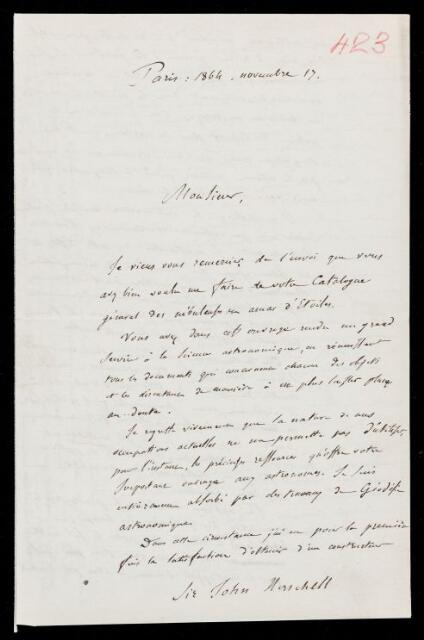 423
Paris : 1864 . novembre 17.
Monsieur,
Je viens vous remercier de l'envoi que vous
avez bien voulu me faire de votre Catalogue
général des nébuleuses et amas d'Etoiles.
Vous avez dans cet ouvrage rendu un grand
service à la science astronomique, en réunissant
tous les documents qui concernent chacun des objets
et les discutant de manière à ne plus laisser place
au doute.
Je regrette vivement que la nature de mes
occupations actuelles ne me permette pas d'utiliser,
pour l'instant, les précieuses ressources qu'offre votre
important ouvrage aux astronomes. Je suis
entièrement absorbé par des travaux de Géodésie
astronomique.
Dans cette circonstance j'ai eu pour la première
fois la satisfaction d'obtenir d'un constructeur
Sir John Herschell